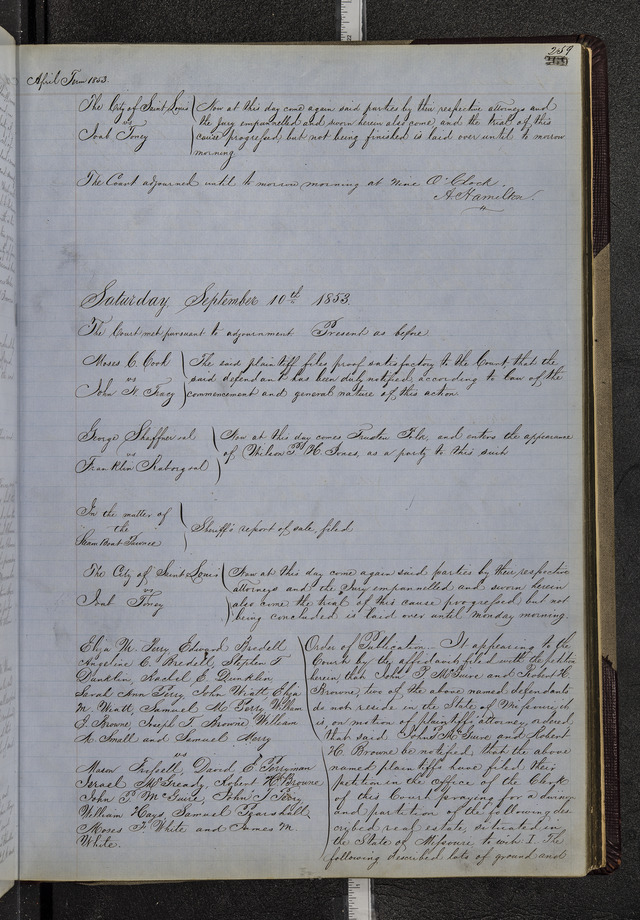 259
259
April Term 1853.
The City of Saint Louis
vs
Torey
Now at this day come again said parties by their respective attorneys and
the Jury empannelled and sworn herein also come and the trial of this
cause progressed, but not being finished is laid over until to morrow
morning
The Court adjourned until to morrow morning at nine O'Clock.
A. Hamilton.
Saturday September 10th 1853
The Court met pursuant to adjournment Present as before
Moses C. Cook
vs
John N. Tracy
The said plaintiff files proof satisfactory to the Court that the
said defendant has been duly notified according to law of the
commencement and general nature of this action
George Sheffner et al
vs
Franklin Raborg et al
Now at this day comes Trusten Polk, and enters the appearance
of Wilson P. H. Jones, as a party to this suit
In the matter of
the
Steam Boat
Sheriff's report of sale filed
The City of Saint Louis
vs
Torey
Now at this day come again said parties by their respective
attorneys and the Jury empannelled and sworn herein
also come the trial of this cause progressed but not
being concluded is laid over until monday morning.
Eliza M. Terry Edward Bredell
Angeline C. Bredell, Stephen T
Dunklin, Rachel E. Dunklin
Sarah Ann Terry John Wiatt Eliza
M. Wiatt, Samuel M. Terry William
J. Browne, Joseph T. Browne William
A. Small and Samuel Merry
vs
Mason Frissell, David E. Perryman
Israel McGready, Robert H. Browne
John P. McGuire, John T.
William Hays, Samuel
Moses F. White and James M.
White.
Order of Publication. It appearing to the
Court by the affidavit filed with the petition
herein that John P. McGuire and Robert H.
Browne, two of the above named defendants
do not reside in the State of Missouri, it
is on motion of plaintiffs attorney ordered
that said John P. McGuire and Robert
H. Browne be notified, that the above
named plaintiffs have filed their
petition in the office of the Clerk
of this Court praying for a division
and partition of the following des
cribed real estate, situated in
the State of Missouri to wit. 1. The
following described lots of ground and